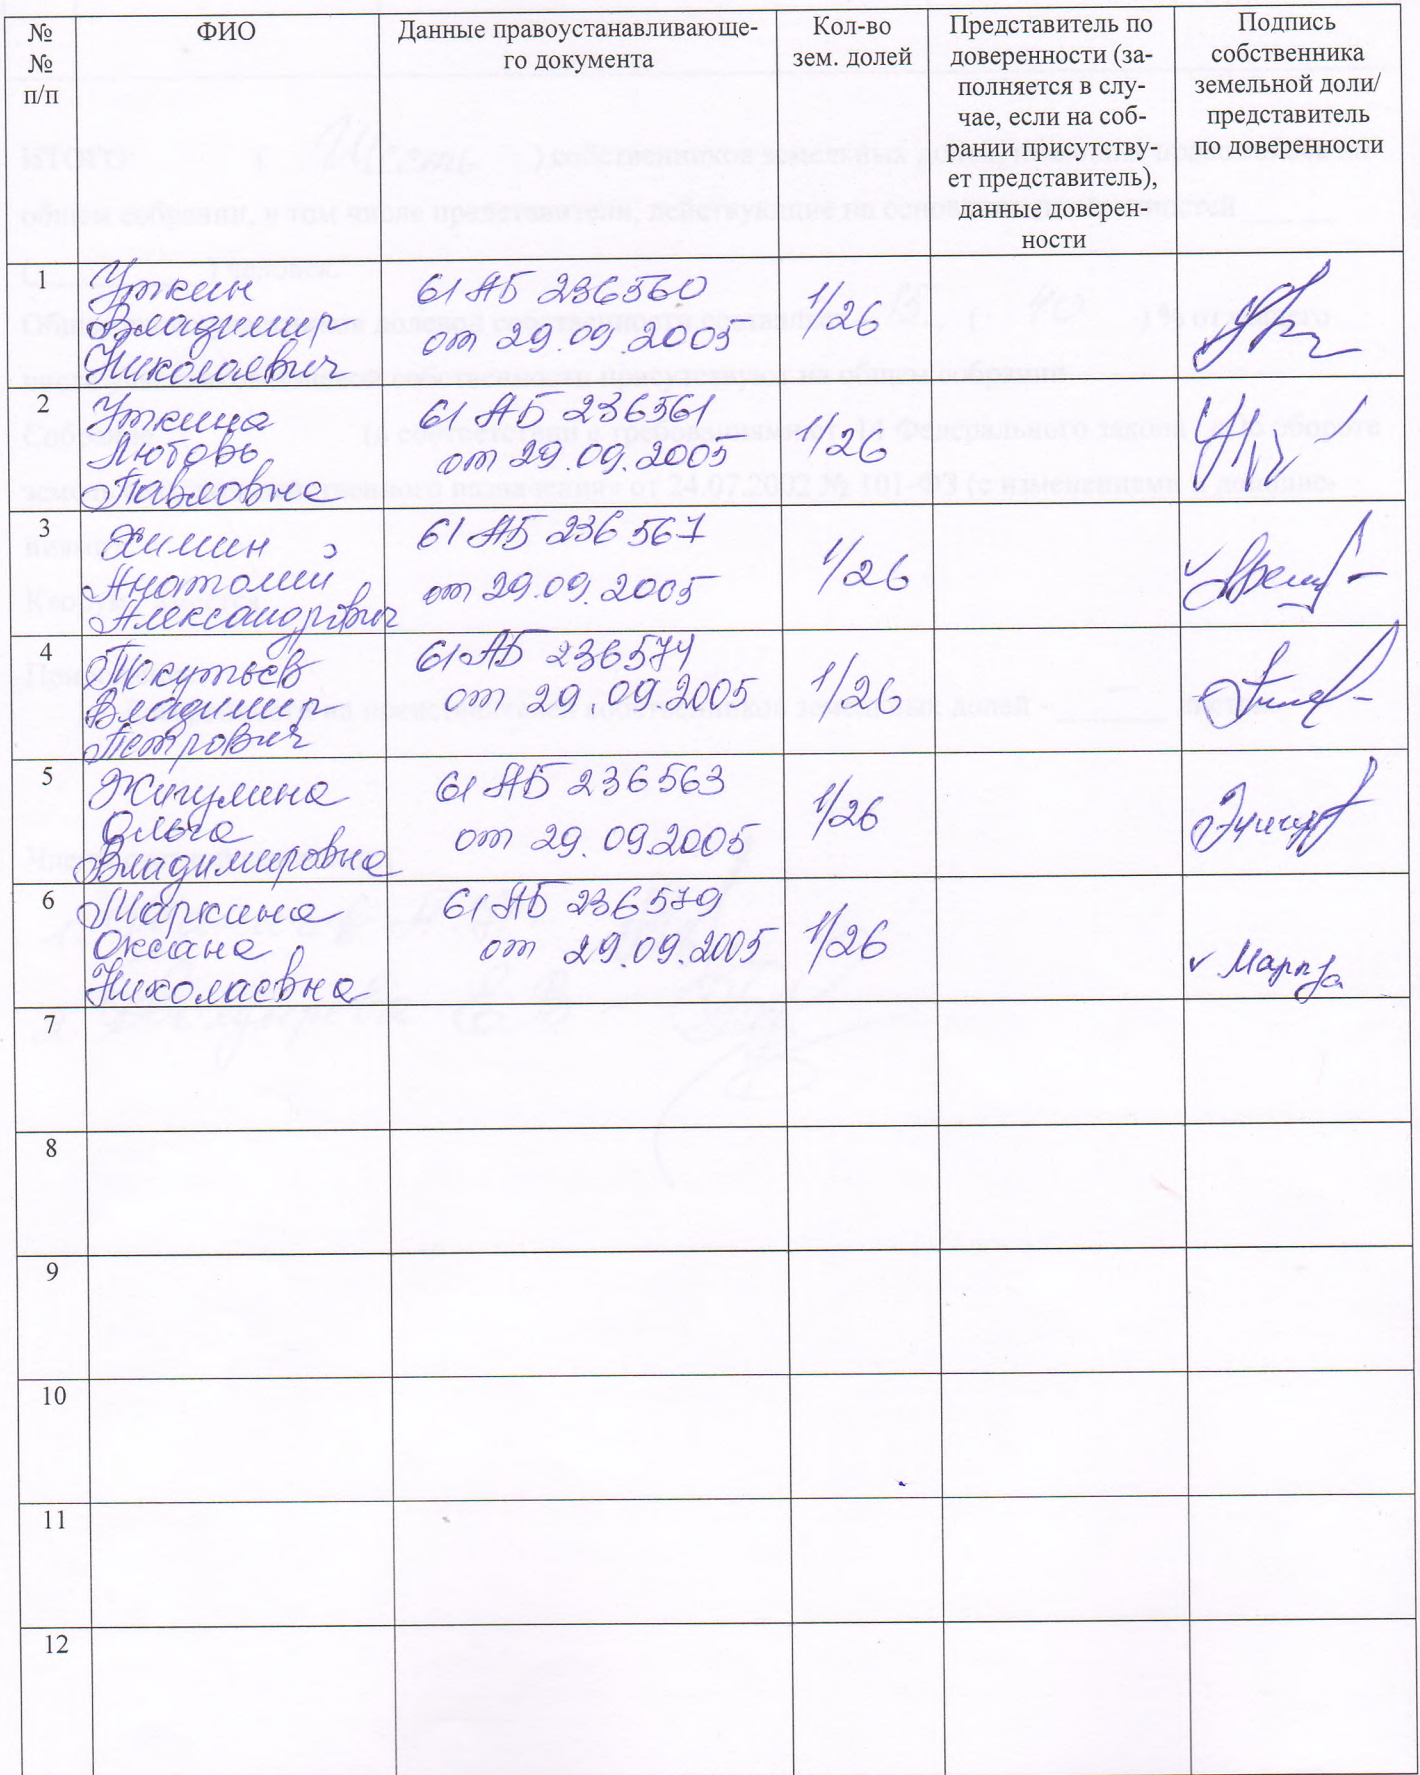 №
№
п/п
ФИО
Данные правоустанавливающе-
го документа
Кол-во
зем. долей
Представитель по
доверенности (за-
полняется в слу-
чае, если на соб-
рании присутству-
ет представитель),
данные доверен-
ности
Подпись
собственника
земельной доли/
представитель
по доверенности
1
Уткин
Владимир
Николаевич
61 АБ 236560
от 29.09.2005
1/26
2
Уткина
Любовь
Павловна
61 АБ 236561
от 29.09.2005
1/26
3
Химин
Анатолий
Александрович
61 АБ 236567
от 29.09.2005
1/26
4
Покутьев
Владимир
Петрович
61 АБ 236574
от 29.09.2005
1/26
5
Жигулина
Ольга
Владимировна
61 АБ 236563
от 29.09.2005
1/26
6
Маркина
Оксана
Николаевна
61 АБ 236579
от 29.09.2005
1/26
7
8
9
10
11
12